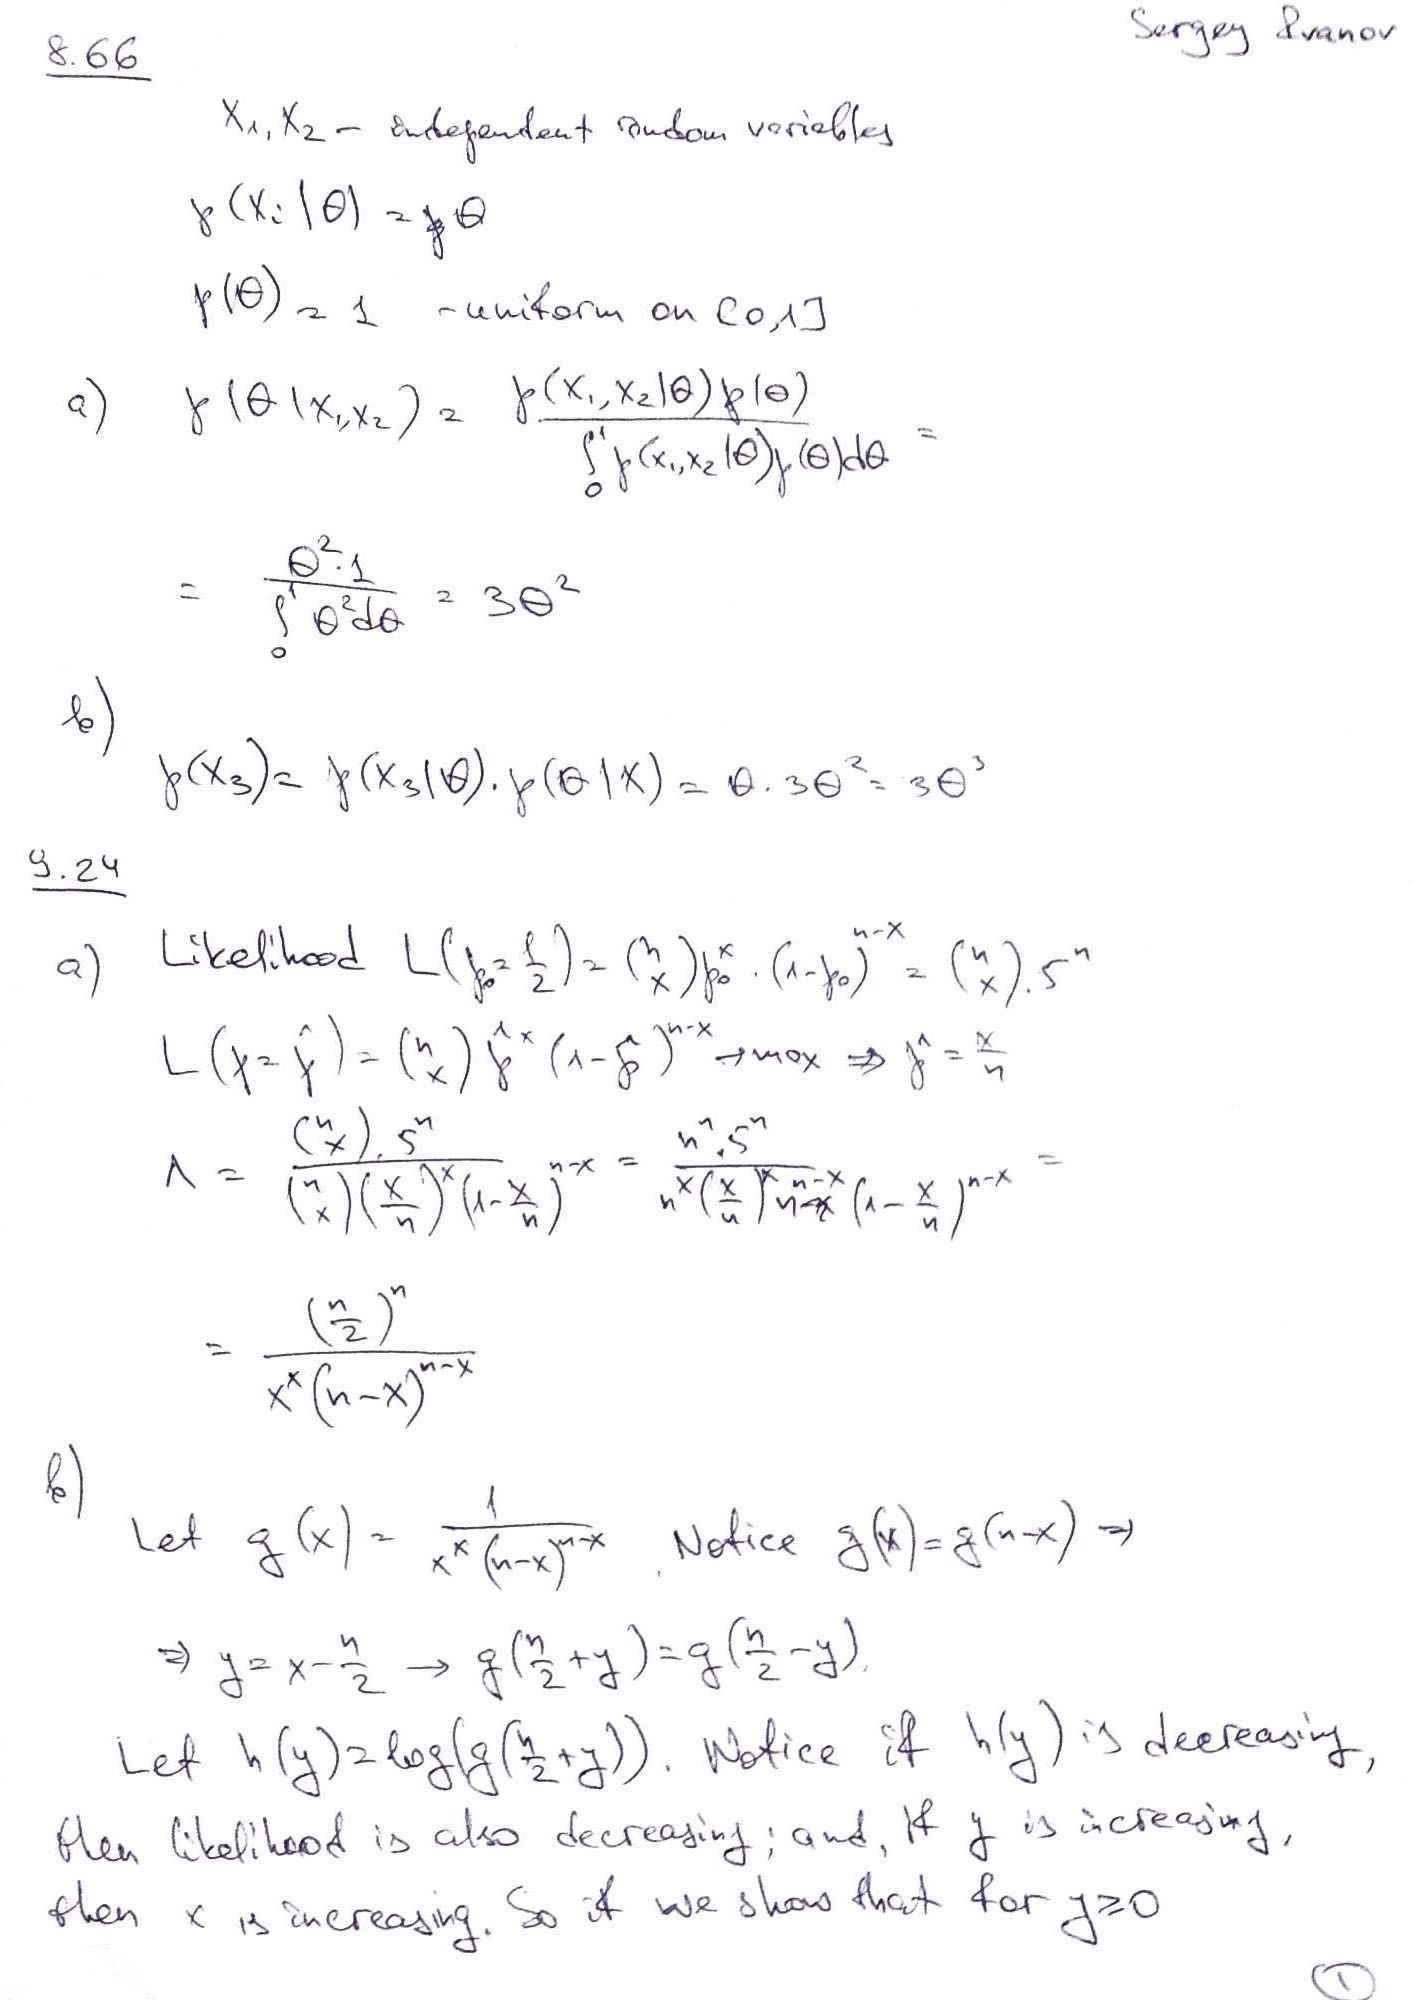 Sergey Ivanov
8.66
X₁, X₂ – independent random variables
p(Xᵢ|θ) = θ
p(θ) = 1 - uniform on [0,1]
a) p(θ|X₁,X₂) = p(X₁,X₂|θ)p(θ) / ∫₀¹ p(X₁,X₂|θ)p(θ)dθ =
= θ²·1 / ∫₀¹ θ²dθ = 3θ²
b)
p(X₃) = p(X₃|θ)·p(θ|X) = θ·3θ² = 3θ³
9.24
a) Likelihood L(p₀ = 1/2) = (n x) p₀ˣ·(1-p₀)ⁿ⁻ˣ = (n x).5ⁿ
L(p = p̂) = (n x) p̂ˣ (1-p̂)ⁿ⁻ˣ → max ⇒ p̂ = x/n
Λ = (n x).5ⁿ / (n x)(x/n)ˣ(1-x/n)ⁿ⁻ˣ = nⁿ.5ⁿ / nˣ(x/n)ˣ nⁿ⁻ˣ (1-x/n)ⁿ⁻ˣ =
= (n/2)ⁿ / xˣ(n-x)ⁿ⁻ˣ
b)
Let g(x) = 1 / xˣ(n-x)ⁿ⁻ˣ. Notice g(x) = g(n-x) ⇒
⇒ y = x - n/2 → g(n/2 + y) = g(n/2 - y).
Let h(y) = log(g(n/2 + y)). Notice if h(y) is decreasing,
then likelihood is also decreasing; and, if y is increasing,
then x is increasing. So if we show that for y ≥ 0
1